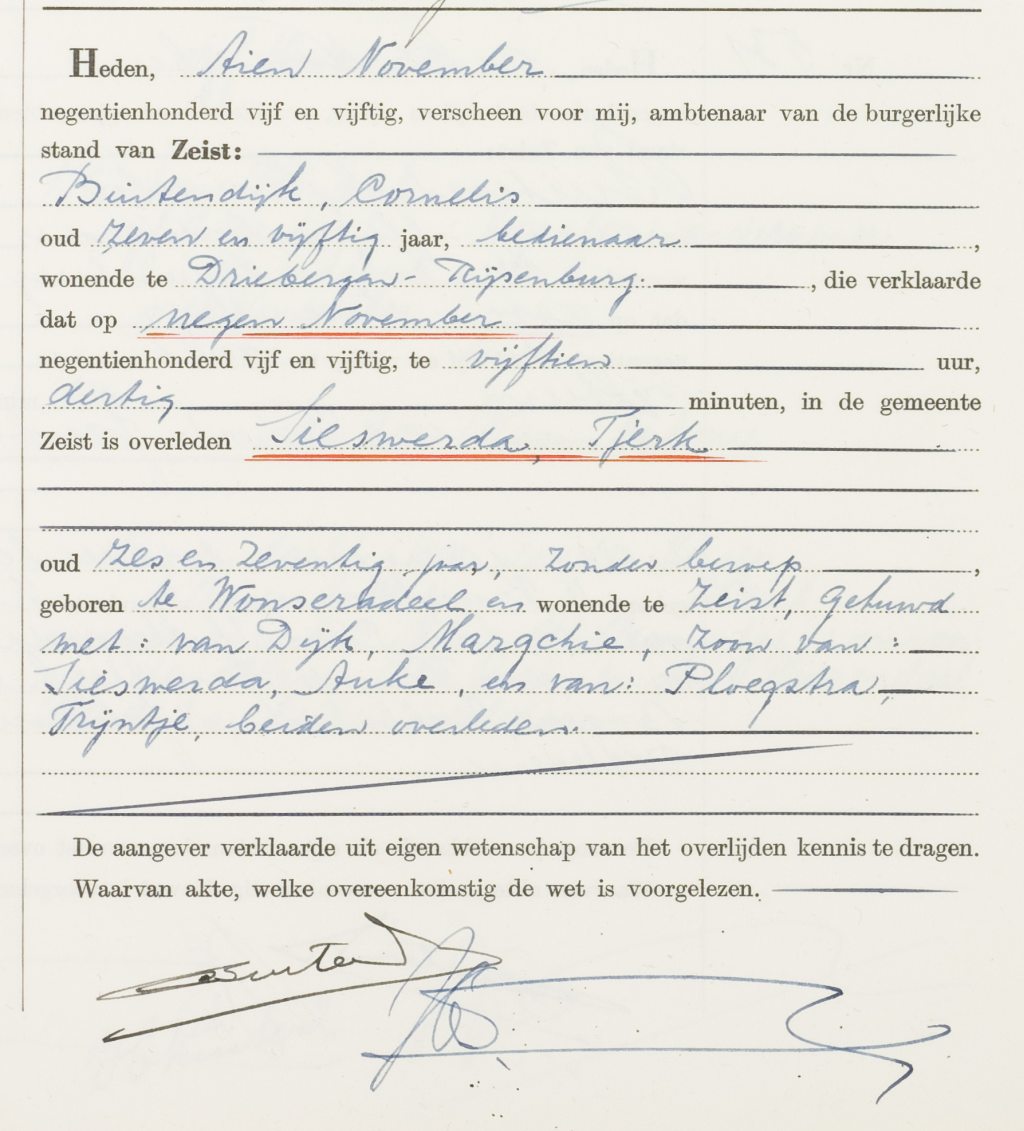 Heden, tien November
negentienhonderd vijf en vijftig, verscheen voor mij, ambtenaar van de burgerlijke
stand van Zeist:
Buitendijk, Cornelis
oud zeven en vijftig jaar, bedienaar,
wonende te Driebergen-Rijsenburg, die verklaarde
dat op negen November
negentienhonderd vijf en vijftig, te vijftien uur,
dertig minuten, in de gemeente
Zeist is overleden Sieswerda, Tjerk
oud zes en zeventig jaar, zonder beroep,
geboren te Wonseradeel en wonende te Zeist, gehuwd
met: van Dijk, Margchie, zoon van:
Sieswerda, Auke, en van: Ploegstra,
Trijntje, beiden overleden.
De aangever verklaarde uit eigen wetenschap van het overlijden kennis te dragen.
Waarvan akte, welke overeenkomstig de wet is voorgelezen.